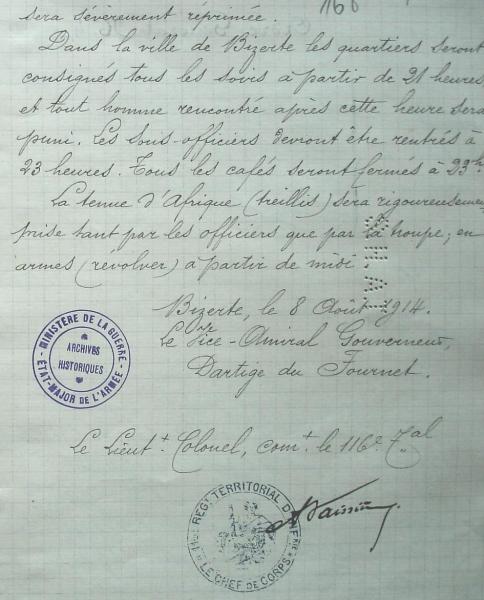 sera sévèrement réprimée.
Dans la ville de Bizerte les quartiers seront
consignés tous les soirs à partir de 21 heures
et tout homme rencontré après cette heure sera
puni. Les Sous-officiers devront être rentrés à
23 heures. Tous les cafés seront fermés à 23h
La tenue d'Afrique (treillis) sera rigoureusement
mise tant par les officiers que par la troupe, en
armes (revolver) à partir de midi.
Bizerte, le 8 Août 1914.
Le Vice-Amiral Gouverneur,
Dartige du Fournet.
MINISTÈRE DE LA GUERRE
ARCHIVES
HISTORIQUES
ÉTAT-MAJOR DE L'ARMÉE
Le Lieutt Colonel, comt le 116e Tal
REGT TERRITORIAL D'INFRIE
LE CHEF DE CORPS